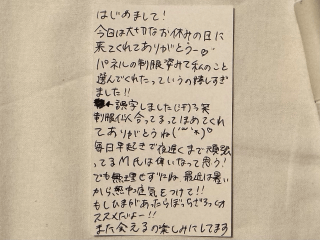 はじめまして!
今日は大切なお休みの日に
来てくれてありがとうー♡
パネルの制服姿みて私のこと
選んでくれたっていうの嬉しすぎ
ました!!
誤字しました(汗)笑
制服似合ってるってほめてくれ
てありがとうね
毎日早起きで夜遅くまで頑張
ってるM氏は偉いなって思う!
でも無理せずにね 最近は暑い
から熱中症気をつけて!!
もしひまがあったら
オススメだよー!!
また会えるの楽しみにしてます